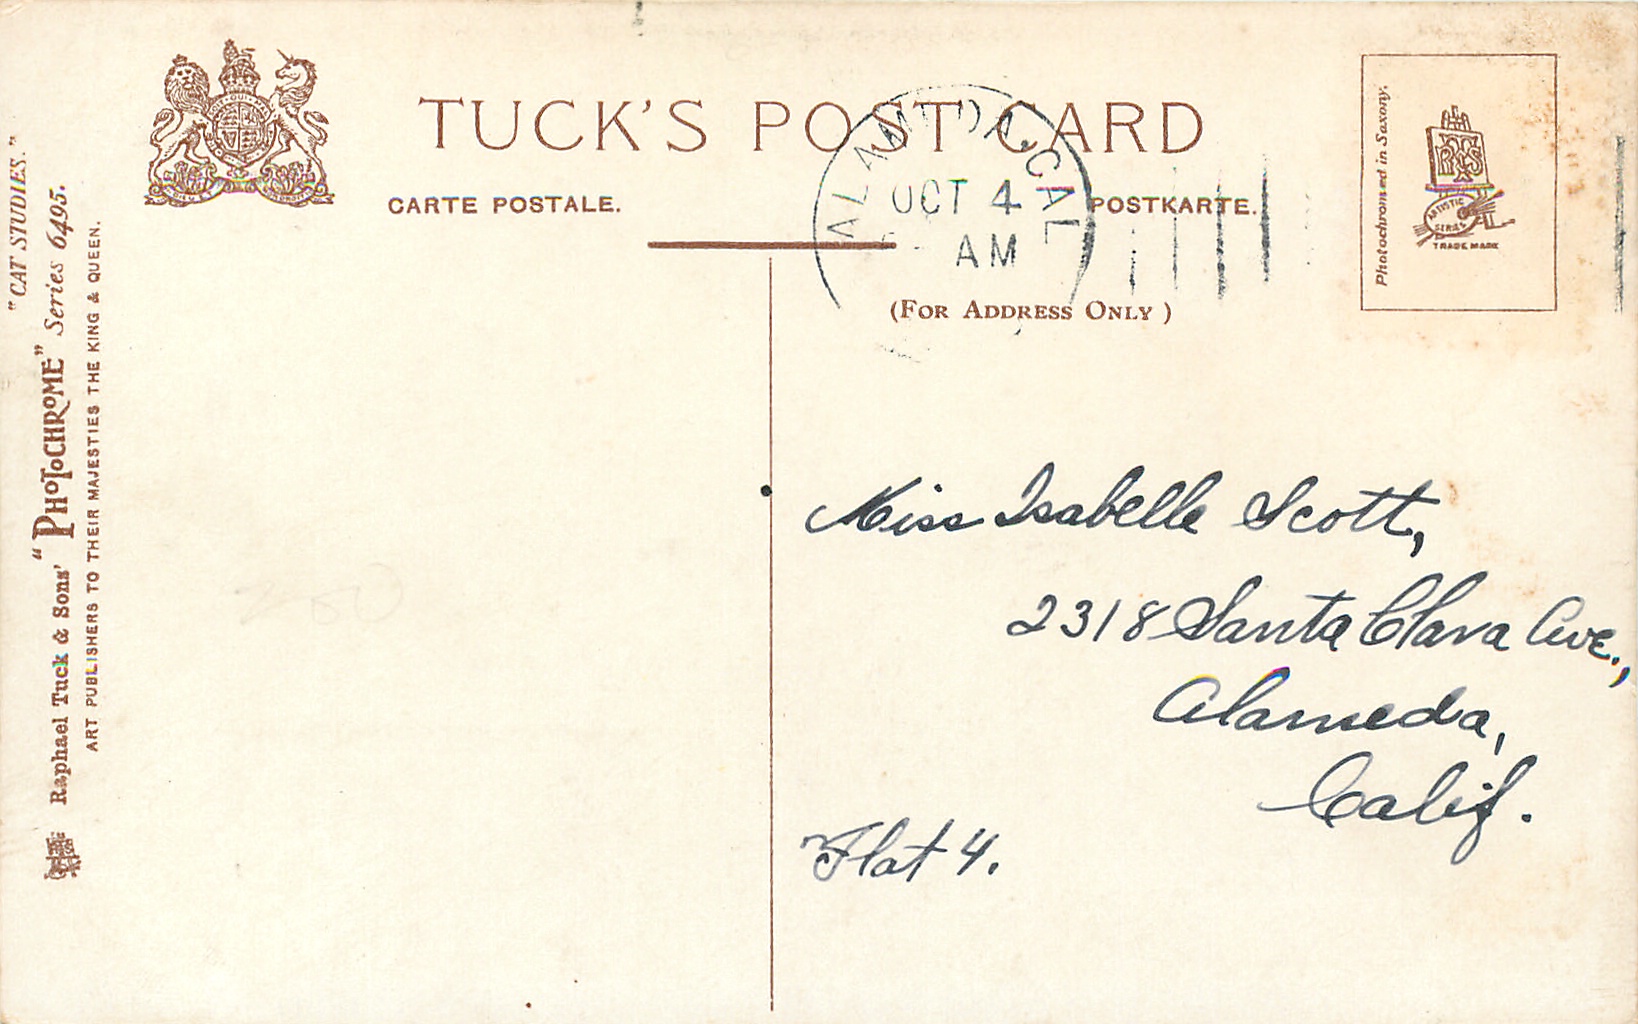 TUCK'S POST CARD
CARTE POSTALE.
POSTKARTE.
(FOR ADDRESS ONLY)
ALAMEDA, CAL
OCT 4
AM
Photochromed in Saxony.
RTS
ARTISTIC SERIES
TRADE MARK
"CAT STUDIES."
Raphael Tuck & Sons' "PHOTOCHROME" Series 6495.
ART PUBLISHERS TO THEIR MAJESTIES THE KING & QUEEN.
Miss Isabelle Scott,
2318 Santa Clara Ave.,
Alameda,
Calif.
Flat 4.